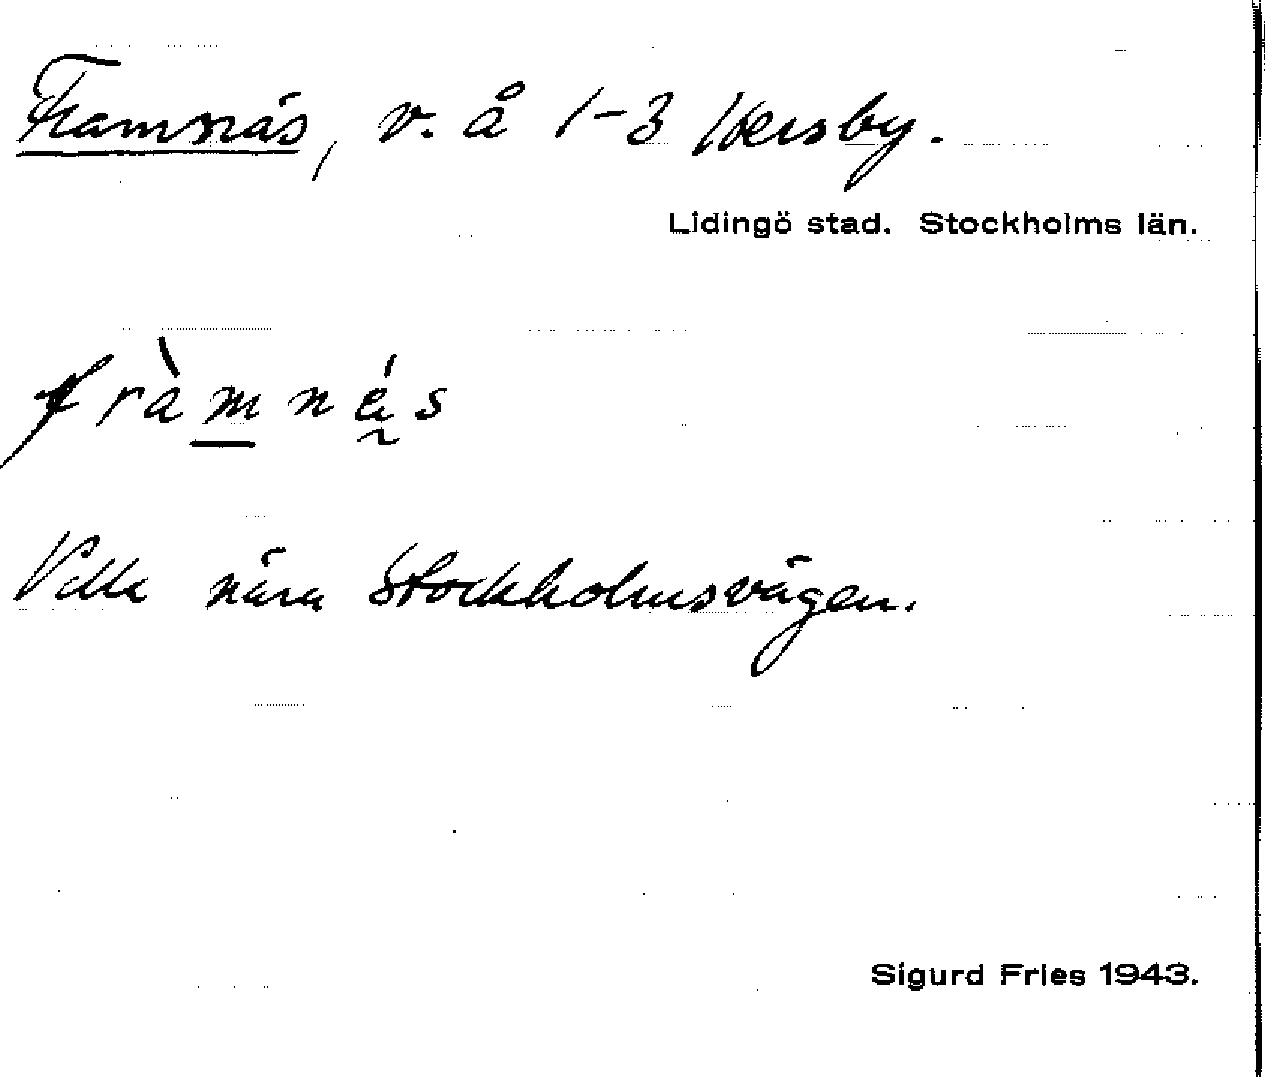 Framnäs, v. å 1-3 Hersby.
Lidingö stad. Stockholms län.
fràmnés
Villa nära Stockholmsvägen.
Sigurd Fries 1943.